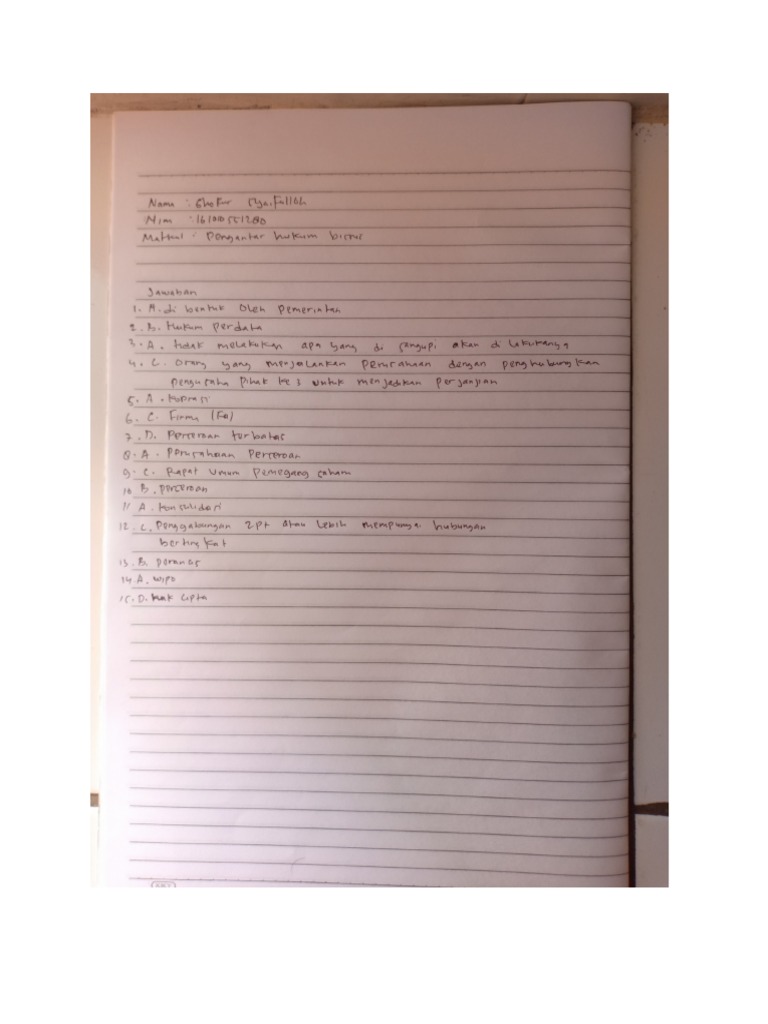 Nama : Ghofur Syaifulloh
Nim : 161010551280
Matkul : Pengantar hukum bisnis
Jawaban
1. A. di bentuk oleh pemerintah
2. B. Hukum perdata
3. A. tidak melakukan apa yang di sangupi akan di lakukanya
4. C. Orang yang menjalankan perusahaan dengan penghubungkan
pengusaha pihak ke 3 untuk menjadikan perjanjian
5. A. koprasi
6. C. Firma (Fa)
7. D. Perseroan terbatas
8. A. Perusahaan Perseroan
9. C. Rapat umum pemegang saham
10 B. perseroan
11 A. konsulidasi
12. C. Penggabungan 2 pt atau lebih mempunyai hubungan
bertingkat
13. B.
14. A. wipo
15. D. Hak Cipta